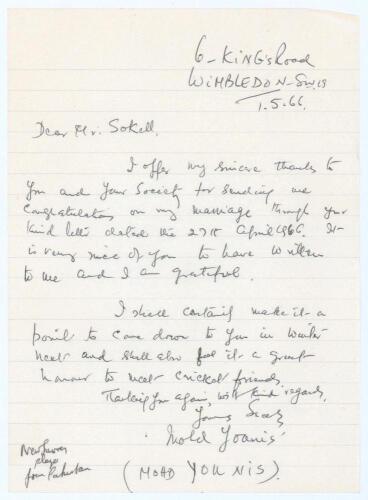 6-KING'S Road
WIMBLEDON-SW19
1.5.66.
Dear Mr. Sokell.
I offer my sincere thanks to
you and your Society for sending me
Congratulations on my marriage through your
kind letter dated the 27th April 1966. It
is very nice of you to have written
to me and I am grateful.
I shall certainly make it a
point to come down to you in winter
next and shall also feel it a great
honour to meet cricket friends.
Thanking you again, with kind regards,
Yours
Mohd Younis
(MOHD YOUNIS).
New Surrey
player
from Pakistan